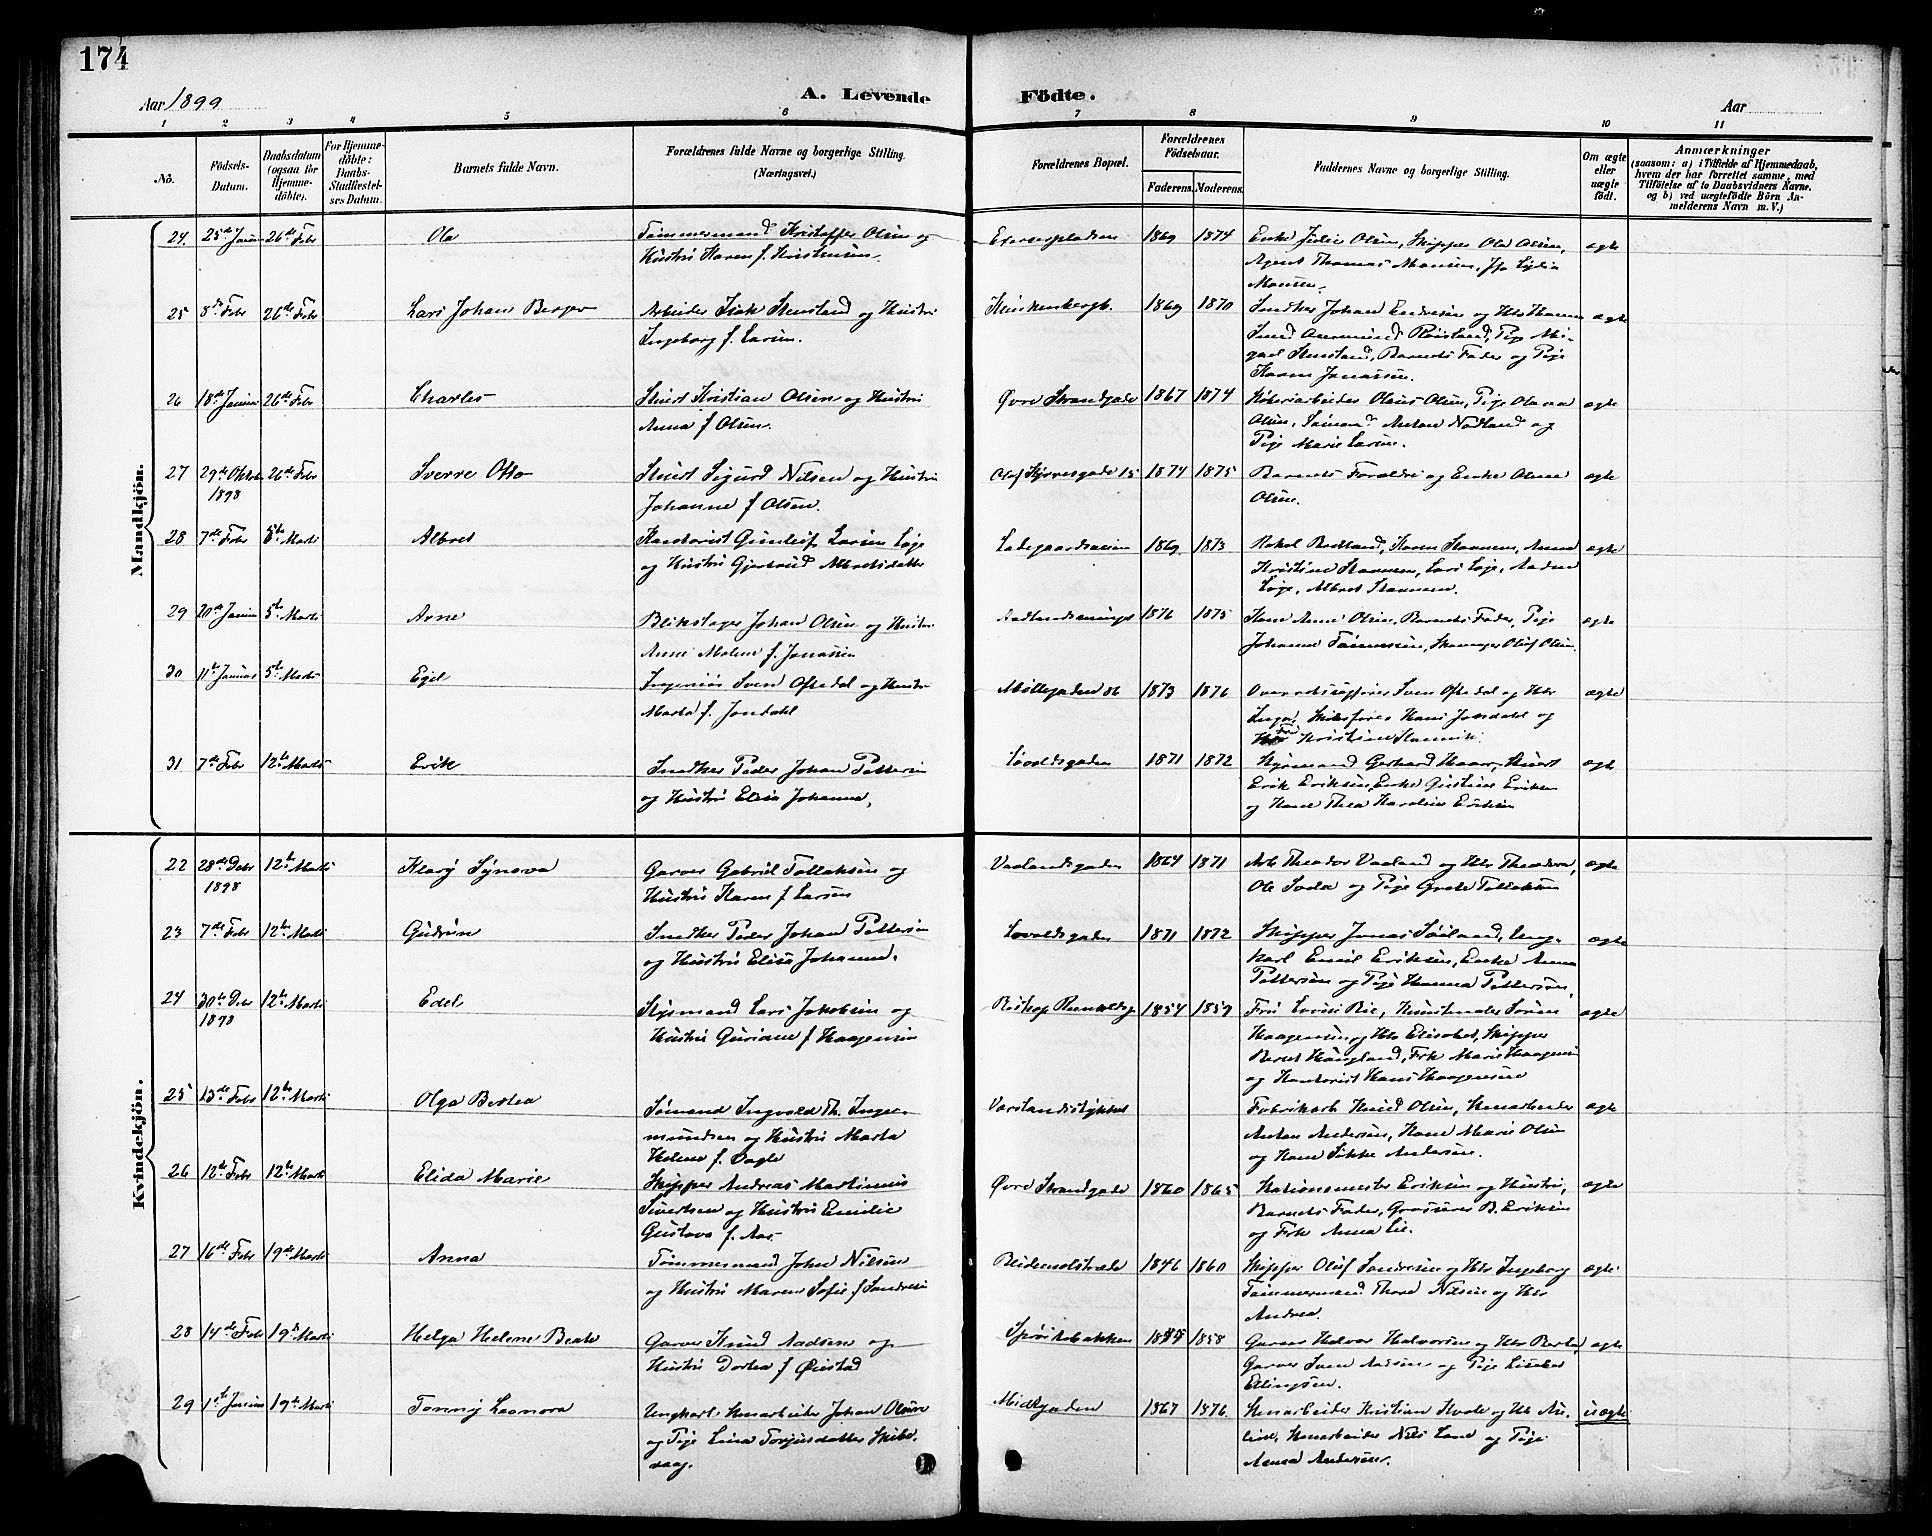 174
Aar 1899
A. Levende
Födte.
Aar
1 2 3 4 5 6 7 8 9 10 11
No.
Födsels-
Datum.
Daabsdatum
(ogsaa for
Hjemme-
döbte).
For Hjemme-
döbte:
Daabs-
Stadfæstel-
ses Datum.
Barnets fulde Navn.
Forældrenes fulde Navne og borgerlige Stilling.
(Næringsvei.)
Forældrenes Bopæl.
Forældrenes
Födselsaar.
Faderens. Moderens.
Faddernes Navne og borgerlige Stilling.
Om ægte
eller
uægte
födt.
Anmærkninger
(saasom: a) i Tilfælde af Hjemmedaab,
hvem der har forrettet samme, med
Tilföielse af to Daabsvidners Navne,
og b) ved uægtefödte Börn An-
melderens Navn m. V.)
Mandkjön.
24 25de Januar 26de Febr Ola
Tømmermand Kristoffer Olsen og
Hustru Karen f. Kristensen.
Exerserpladsen 1869 1874
Enke Julie Olsen, Skipper Ole Olsen,
Agent Thomas Monsen, Lydia
Monsen.
ægte
25 8de Febr 26de Febr Lars Johan Berger
Arbeider Isak Stensland og Hustru
Ingeborg f. Larsen.
1869 1870
Snedker Johan Endresen og Hstr Hanna
Smed Røisland, Pige
Stensland, Barnets Fader og Pige
Karen Jonassen.
ægte
26 18de Januar 26de Febr Charles
Stuert Kristian Olsen og Hustru
Anna f. Olsen.
Øvre Strandgade 1867 1874
Olaus Olsen, Pige Olava
Olsen, Sømand Anton Nodland og
Pige Marie Larsen.
ægte
27 29de Oktober 1898 26de Febr Sverre Otto
Stuert Sigurd Nilsen og Hustru
Johanne f Olsen.
Olaf Kyrresgade 15 1874 1875
Barnets Forældre og Enke
Olsen.
ægte
28 7de Febr 5te Marts Albret
Kontorist Gunleif Larsen Løge
og Hustru Gjertrud Albretsdatter
Ladegaardsveien 1869 1873
Rakel Bredland, Karen
Kristine Lars Løge,
Løge, Albret
ægte
29 20de Januar 5te Marts Arne
Blikslager Johan Olsen og Hustru
Anne Malene f. Jonassen
1876 1875
Kone Anne Olsen, Barnets Fader, Pige
Johanne Tønnessen, Oluf Olsen.
ægte
30 11te Januar 5te Marts Egil
Ingeniør Sven Oftedal og Hustru
Marta f. Jondahl
Møllegaden 86 1873 1876
Overretssagfører Sven Oftedal og Hstr
Inga, Skibsfører Hans Jondahl og
Fru Kristine
ægte
31 7de Febr 12te Marts Erik
Snedker Peder Johan Pettersen
og Hustru Elisa Johanne.
Løvoldsgaden 1871 1872
Styrmand Gerhard Haar, Stuert
Erik Eriksen, Enke Gustine Eriksen
og Kone Thea Karoline Eriksen
ægte
Kvindekjön.
22 28de Debr 1898 12te Marts Klary Synova
Garver Gabriel Tollaksen og
Hustru Karen f Larsen
Vaalandsgaden 1864 1871
Arb Theodor Vaaland og Hstr Theodora,
Ole og Pige Grete Tollaksen
ægte
23 7de Febr 12te Marts Gudrun
Snedker Peder Johan Pettersen
og Hustru Elisa Johanne.
Løvoldsgaden 1871 1872
Skipper Jonas Søiland, Ung-
karl Emil Eriksen, Enke Anna
Pettersen og Pige Hanna Pettersen.
ægte
24 30te Debr 1898 12te Marts Edel
Styrmand Lars Jakobsen og
Hustru Guriane f Haagensen
Biskop Reinaldsg 1854 1859
Fru Lovise Rie, Søren
Haagensen og Hstr Elisabet, Skipper
Beret Haugland, Frk Marie Haagensen
og Kontorist Hans Haagensen
ægte
25 13de Febr 12te Marts Olga Bertea
Sømand Ingvald Th. Inge-
mundsen og Hustru Marta
Helene f. Vagle
Varlandsstykket
Fabrikarb Knud Olsen, Stenarbeider
Anton Andersen, Kone Marie Olsen
og Kone Sikke Andersen.
ægte
26 12te Febr 12te Marts Elida Marie
Skipper Andreas Martinius
Sivertsen og Hustru Emilie
Gustava f. Aas.
Øvre Strandgade 1860 1865
Stationsmester Eriksen og Hustru,
Barnets Fader, Grosserer B. Eriksen
og Frk Anna Lie.
ægte
27 16de Febr 19de Marts Anna
Tømmermand John Nilsen
og Hustru Maren Sofie f Sondresen
Bleidensolstræde 1846 1860
Skipper Oluf Sondresen og Hstr Ingeborg
Tømmermand Thore Nilsen og Hstr
Andrea.
ægte
28 14de Febr 19de Marts Helga Helene Beate
Garver Knud Aadsen og
Hustru Dortea f Øiestad
Spøitebakken 1855 1858
Garver Halvor Halvorsen og Hstr Berta,
Garver Sven Aadsen og Pige
Ellingsen.
ægte
29 1ste Januar 19de Marts Tonny Leonora
Ungkarl, Stenarbeider Johan Olsen
og Pige Lina Torjusdatter Skibs-
vaag.
Midtgaden 1867 1876
Stenarbeider Kristian Kvale og Hstr
Stenarbeider Nils Lund og Pige
Anna Andersen.
uægte